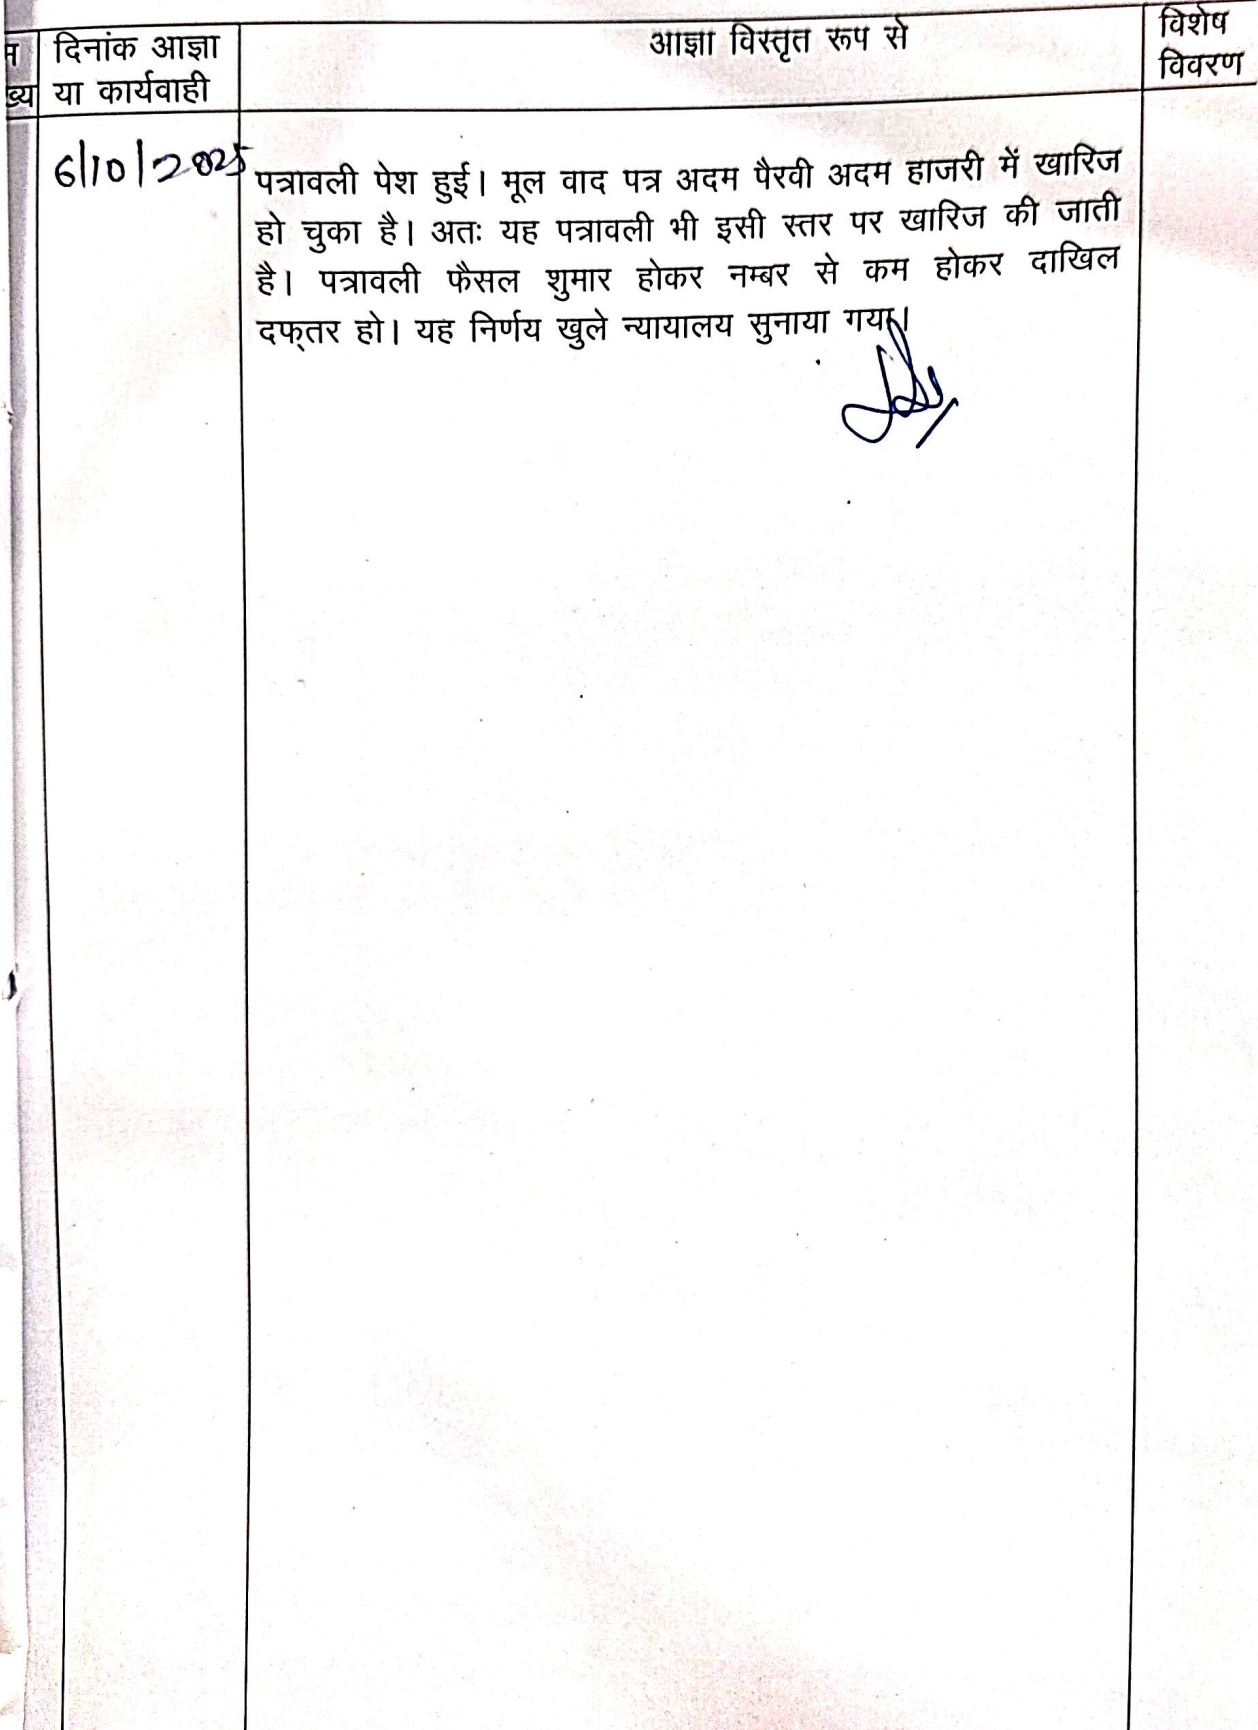 दिनांक आज्ञा
या कार्यवाही
आज्ञा विस्तृत रूप से
विशेष
विवरण
6/10/2025
पत्रावली पेश हुई। मूल वाद पत्र अदम पैरवी अदम हाजरी में खारिज
हो चुका है। अतः यह पत्रावली भी इसी स्तर पर खारिज की जाती
है। पत्रावली फैसल शुमार होकर नम्बर से कम होकर दाखिल
दफ्तर हो। यह निर्णय खुले न्यायालय सुनाया गया।